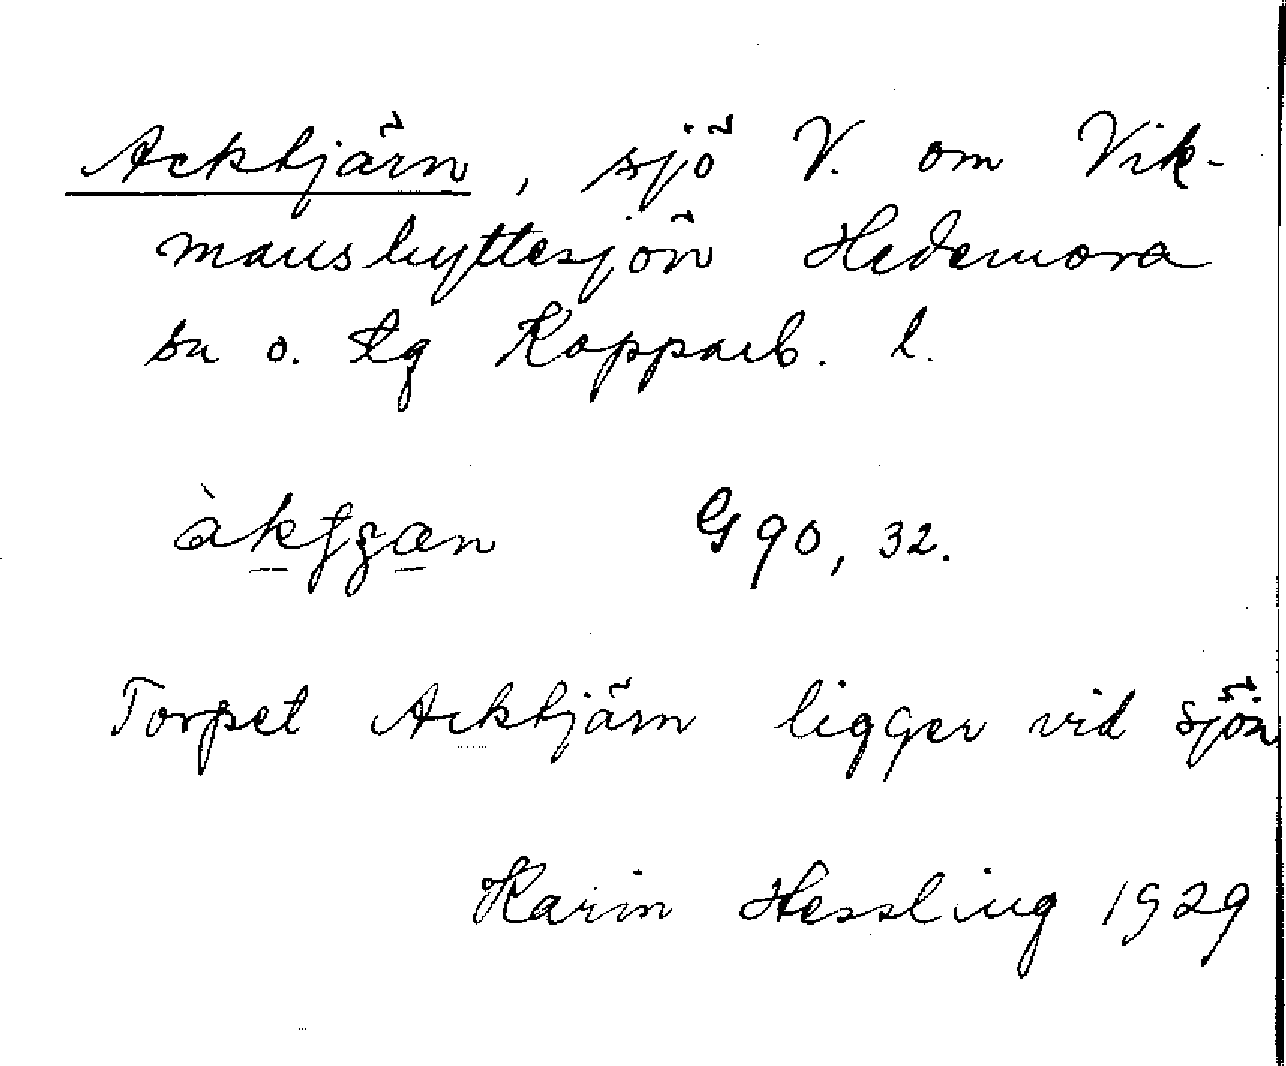 Acktjärn, sjö V. om Vik-
manshyttesjön Hedemora
sn o. tg Kopparb. l.
G 90, 32.
Torpet Acktjärn ligger vid sjön
Karin Hessling 1929